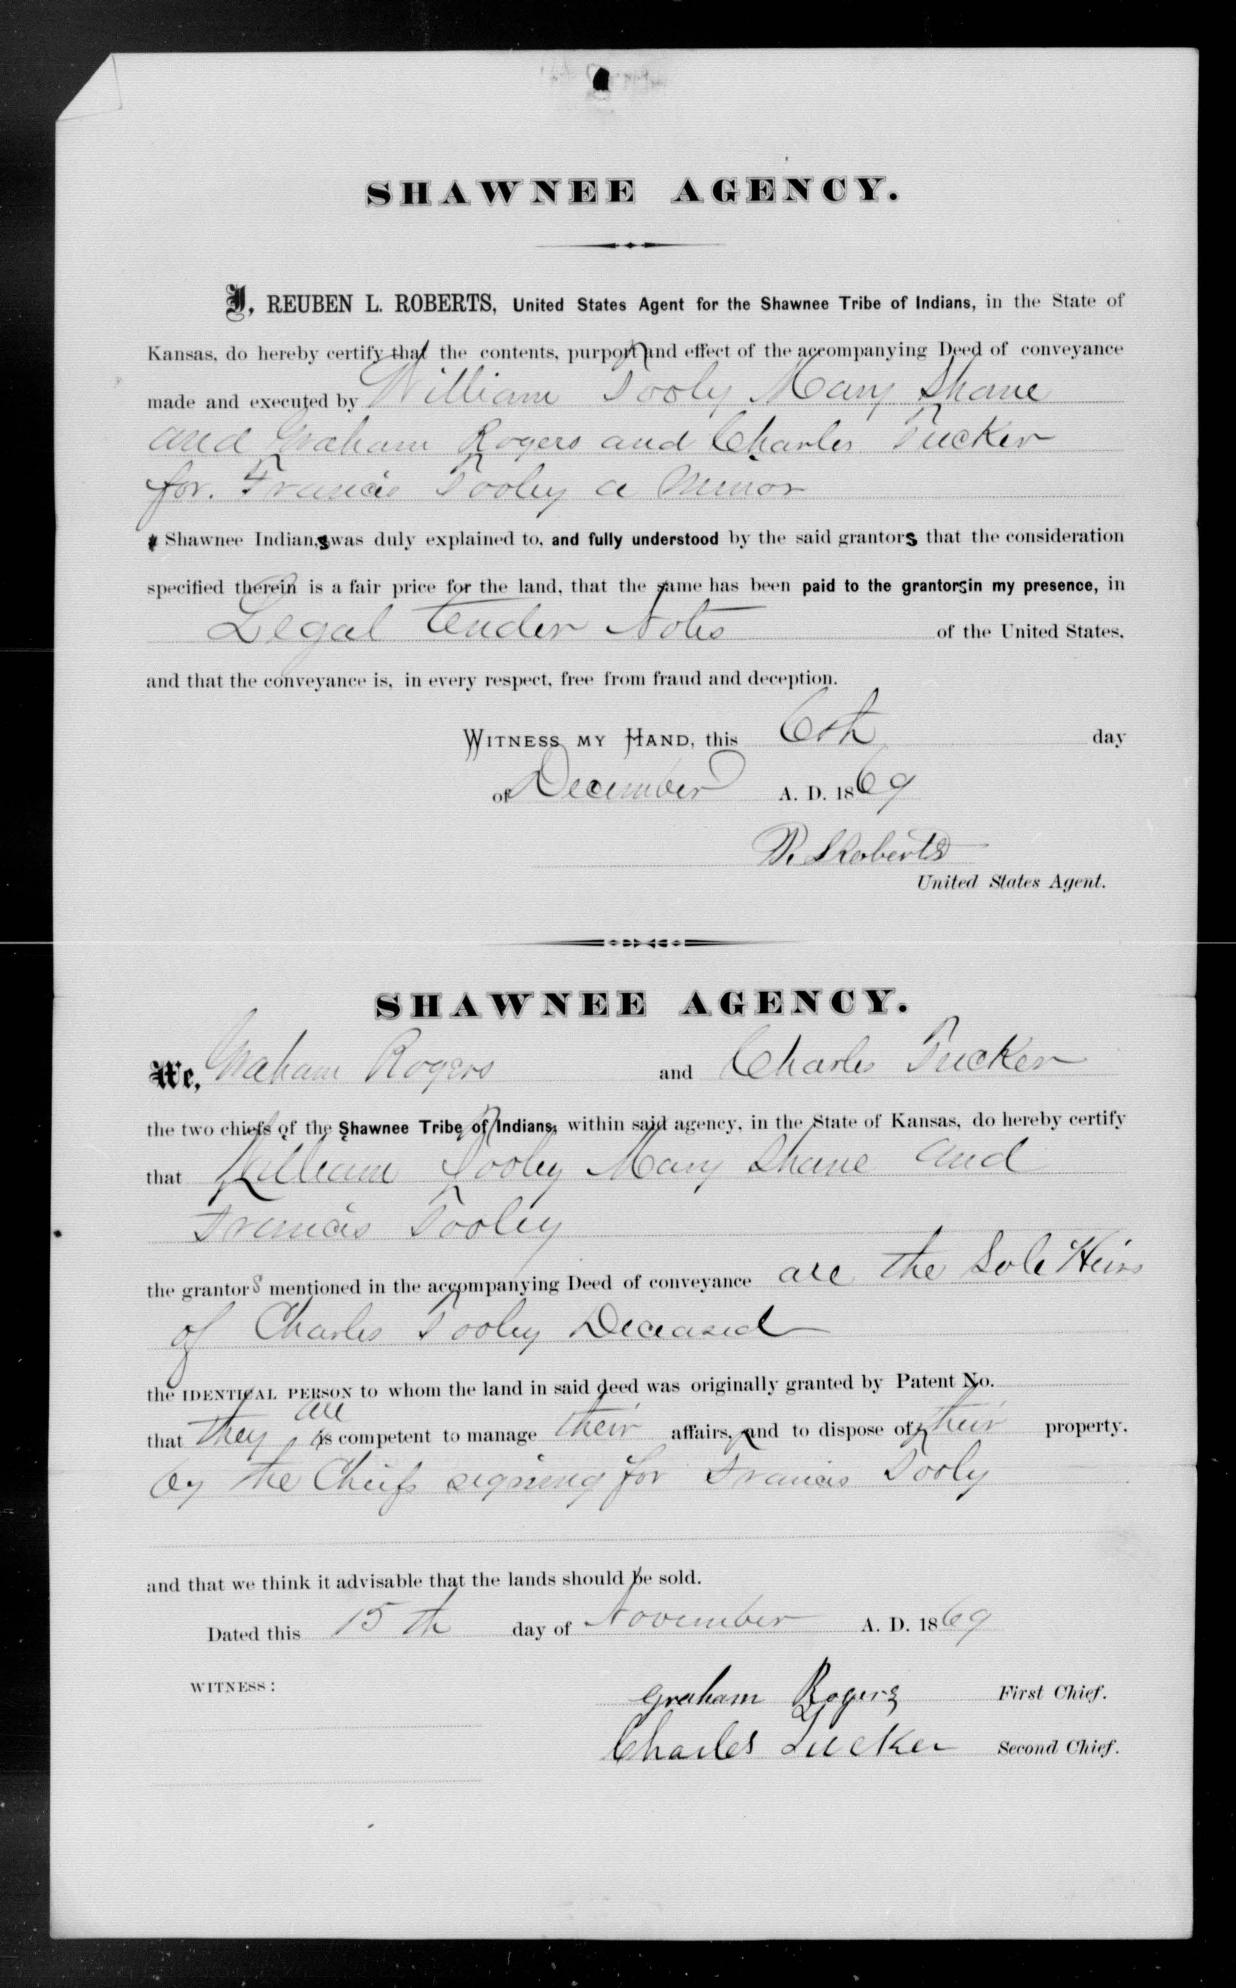 SHAWNEE AGENCY.
I, REUBEN L. ROBERTS, United States Agent for the Shawnee Tribe of Indians, in the State of
Kansas, do hereby certify that the contents, purport and effect of the accompanying Deed of conveyance
made and executed by William Tooly Mary Shane
and Graham Rogers and Charles Tucker
for. Francis Tooley a Minor
Shawnee Indian,s was duly explained to, and fully understood by the said grantors that the consideration
specified therein is a fair price for the land, that the same has been paid to the grantors in my presence, in
Legal Tender Notes of the United States,
and that the conveyance is, in every respect, free from fraud and deception.
WITNESS MY HAND, this 6th day
of December A. D. 1869
R. L Roberts
United States Agent.
SHAWNEE AGENCY.
We, Graham Rogers and Charles Tucker
the two chiefs of the Shawnee Tribe of Indians, within said agency, in the State of Kansas, do hereby certify
that William Tooley Mary Shane and
Francis Tooley
the grantors mentioned in the accompanying Deed of conveyance are the Sole Heirs
of Charles Tooley Deceased
the IDENTICAL PERSON to whom the land in said deed was originally granted by Patent No.
that they are is competent to manage their affairs, and to dispose of their property.
by the Chiefs signing for Francis Tooly
and that we think it advisable that the lands should be sold.
Dated this 15th day of November A. D. 1869
WITNESS:
Graham Rogers First Chief.
Charles Tucker Second Chief.